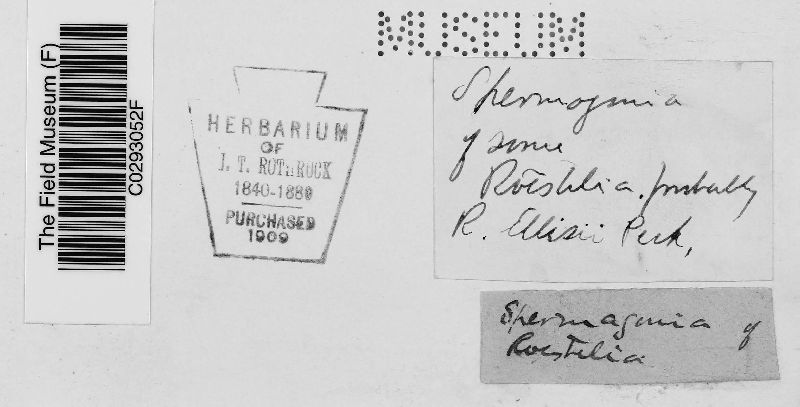 MUSEUM
The Field Museum (F)
C0293052F
HERBARIUM
OF
J. T. ROTHROCK
1840-1880
PURCHASED
1909
Spermogonia
of some
Röestelia. probably
R. Ellisii Peck,
Spermagonia of
Roestelia